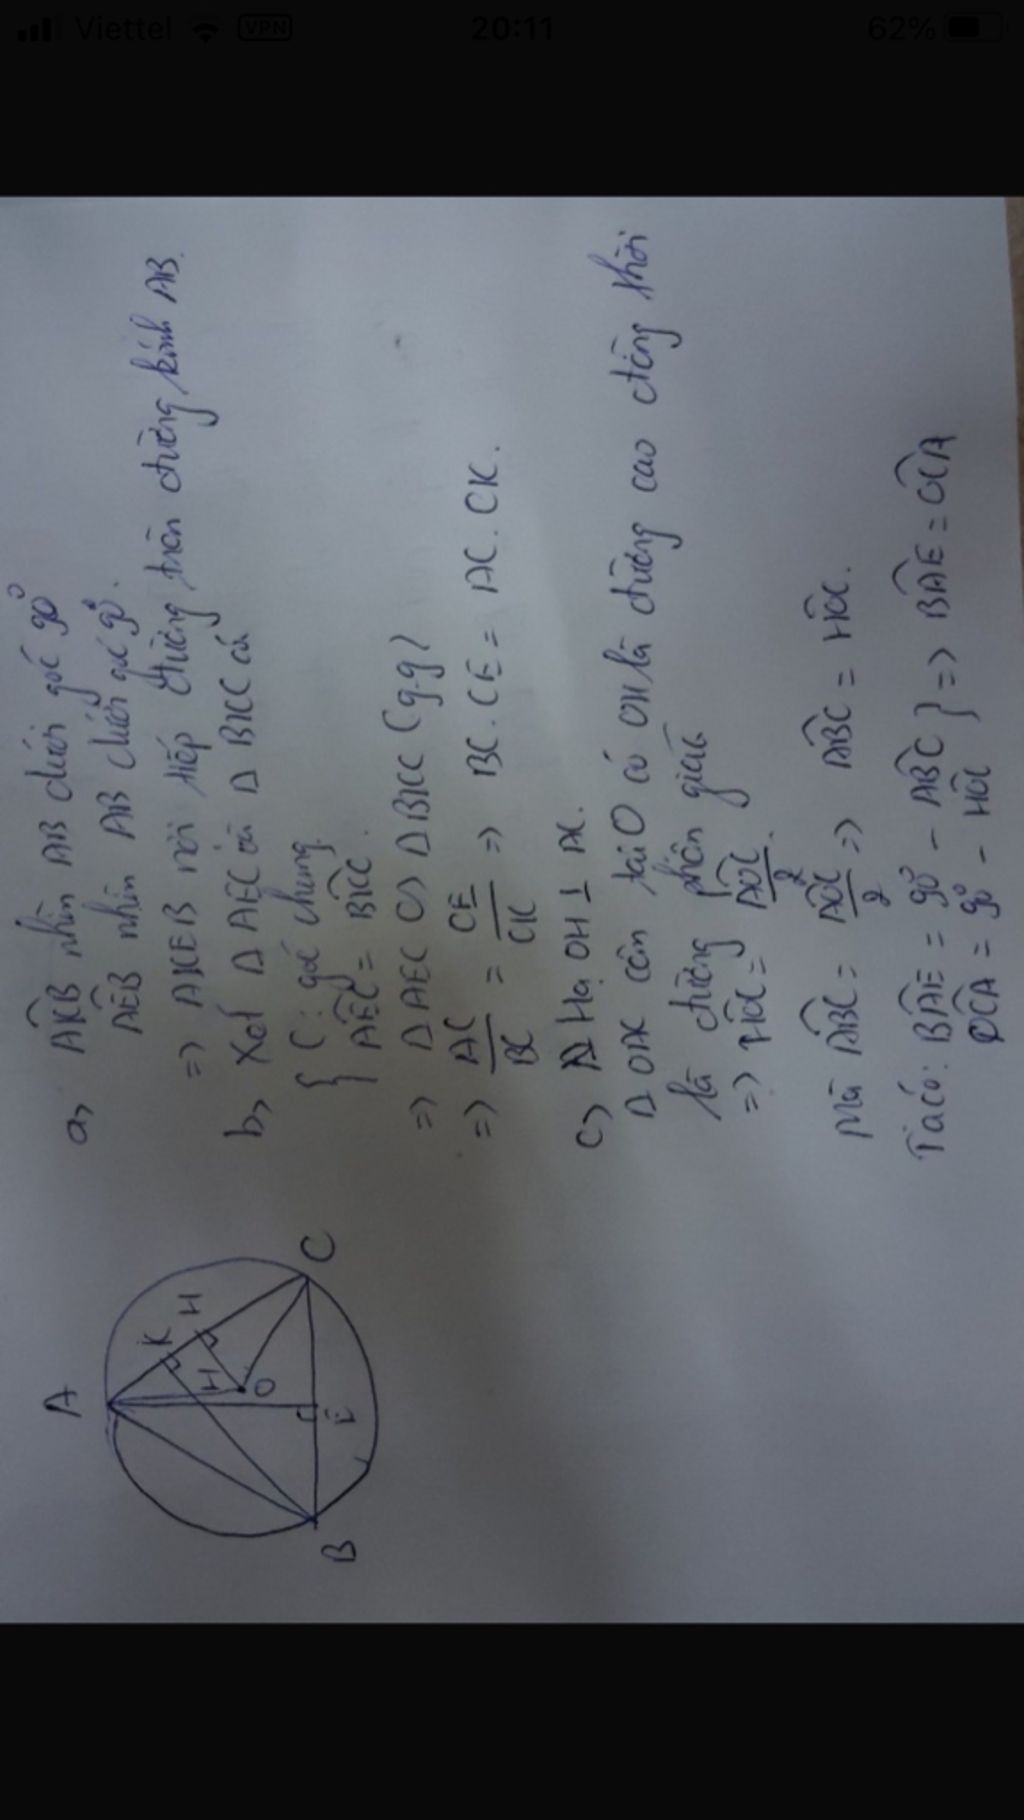 Viettel VPN 20:11 62%
a, AK̂B nhìn AB dưới góc 90°
AÊB nhìn AB dưới góc 90°.
=> AKEB nội tiếp đường tròn đường kính AB.
b, Xét Δ AEC và Δ BKC có
{ C: góc chung.
AÊC = BK̂C.
=> Δ AEC ∽ Δ BKC (g.g)
=> AC/BC = CE/CK => BC.CE = AC.CK.
c, Hạ OH ⊥ AC.
Δ OAC cân tại O có OH là đường cao đồng thời
là đường phân giác
=> HÔC = AÔC/2.
Mà AB̂C = AÔC/2 => AB̂C = HÔC.
Ta có: BÂE = 90° - AB̂C } => BÂE = OĈA
OĈA = 90° - HÔC
A
K
H
H
O
C
E
B